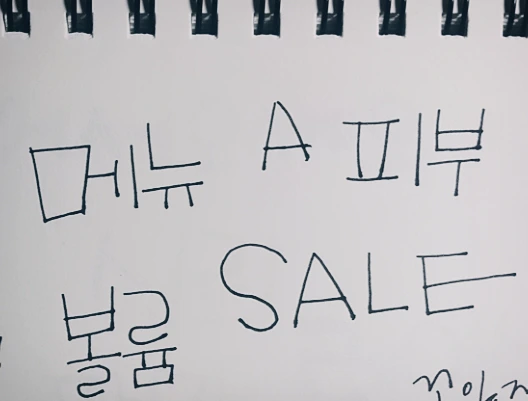 메뉴 A 피부
볼륨 SALE